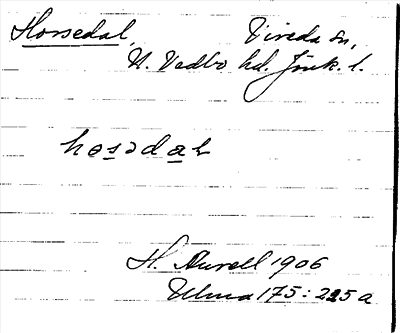 Horsedal, Vireda sn,
N. Vedbo hd. Jönk. l.
hosədal
H. Aurell 1906
Ulma 175: 225 a